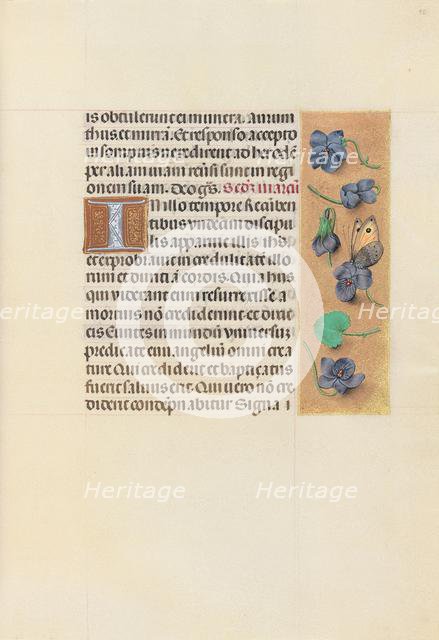 is obtulerunt ei munera. Aurum
thus et mirrā. Et responso accepto
in sompnis ne redirent ad herodē
per aliam uiam reūsi sunt in regi
onem suam. Deo grs. Scdm marcū
In illo tempore Recūben
tibus undecim discipu
lis apparuit illis ihūs
et exprobrauit incredulitatē illo
rum et duriciā cordis. Quia hiis
qui uiderant eum resurrexisse a
mortuis non crediderunt et dixit
eis Euntes in mundū vniuersuz
predicate euangeliū omni crea
ture Qui crediderit et baptizatus
fuerit saluus erit. Qui uero nō cre
diderit condēpnabitur Signa
Heritage
Heritage
Heritage
Heritage